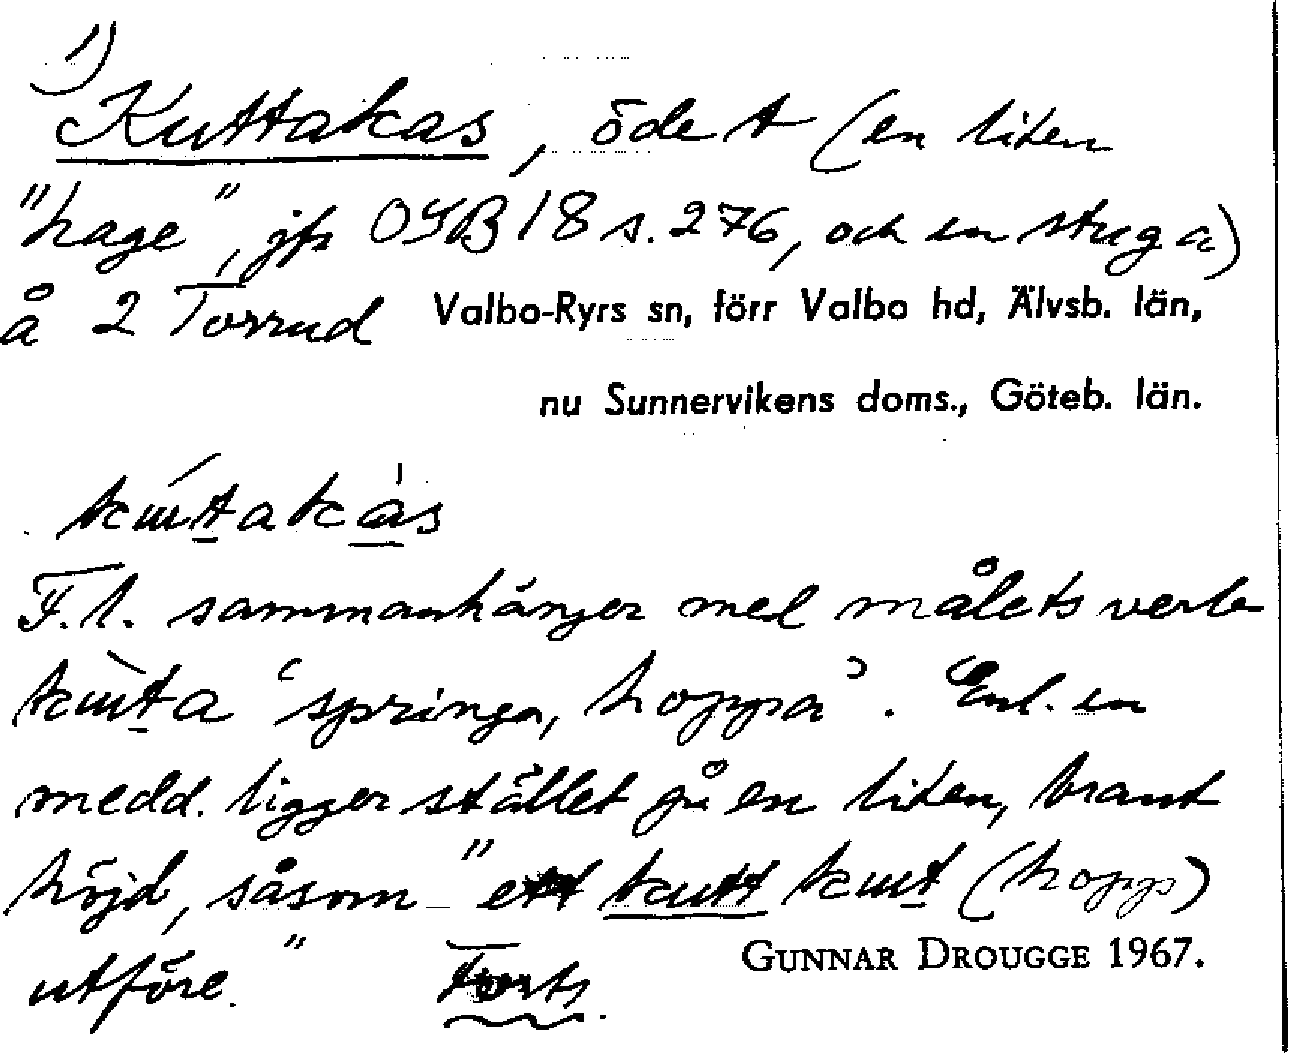 1)
Kuttakas, ödet (en liten
"hage", jfr OGB 18 s. 276, och en stuga)
å 2 Torrud Valbo-Ryrs sn, förr Valbo hd, Älvsb. län,
nu Sunnervikens doms., Göteb. län.
F.l. sammanhänger med målets verb
kuta 'springa, hoppa'. Enl. en
medd. ligger stället på en liten, brant
höjd, såsom "ett kutt kut (hopp)
utföre." Forts.
GUNNAR DROUGGE 1967.